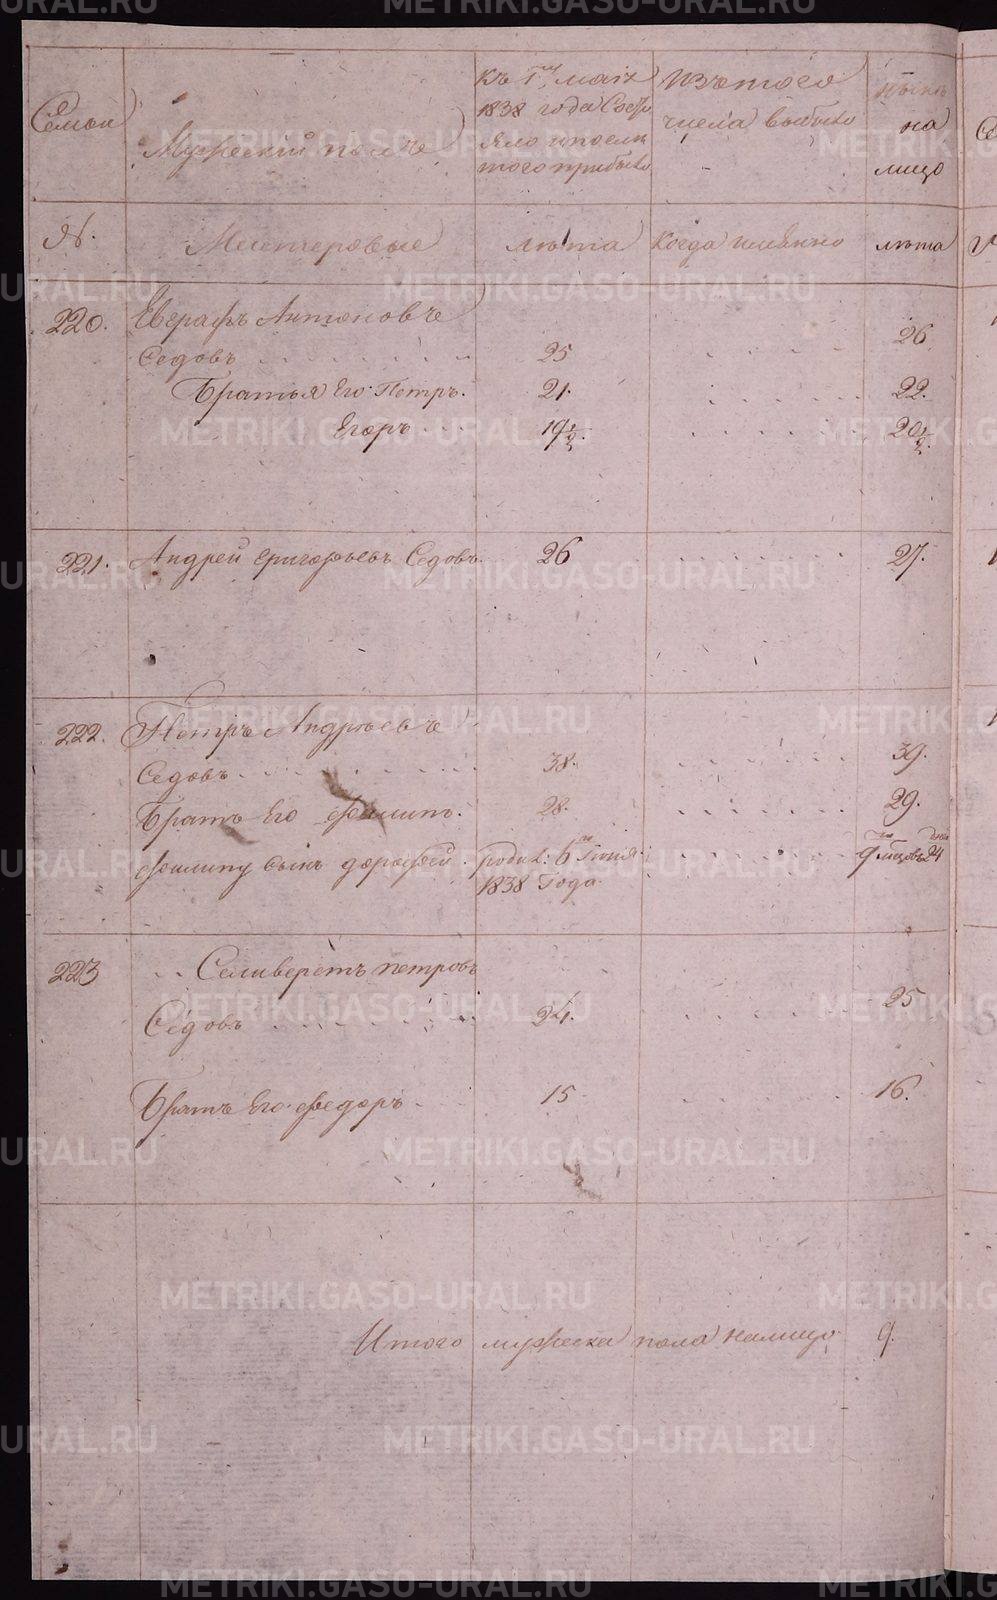 Семьи
Мужеский полъ
Къ 1му маiя
1838 года Состо
яло и после
того прибыло
Изъ того
числа выбыло
Нынѣ
на
лицо
№.
Мастеровые
лѣта
Когда имянно
лѣта
220.
Евграфъ Антоновъ
Седовъ
25
26
Братья Его Петръ.
21.
22.
Егоръ
19 1/2.
20 1/2.
221.
Андрей Григорьевъ Седовъ.
26
27.
222.
Петръ Андреевъ
Седовъ
38.
39.
Братъ Его Филипъ.
28.
29.
Филипу сынъ дорофей.
родил: 6го Iюня
9 мцовъ 24 дней
1838 Года
223
Селиверстъ петровъ
Седовъ
24.
25
Братъ Его Федоръ
15
16.
Итого мужеска пола налицо 9.
METRIKI.GASO-URAL.RU